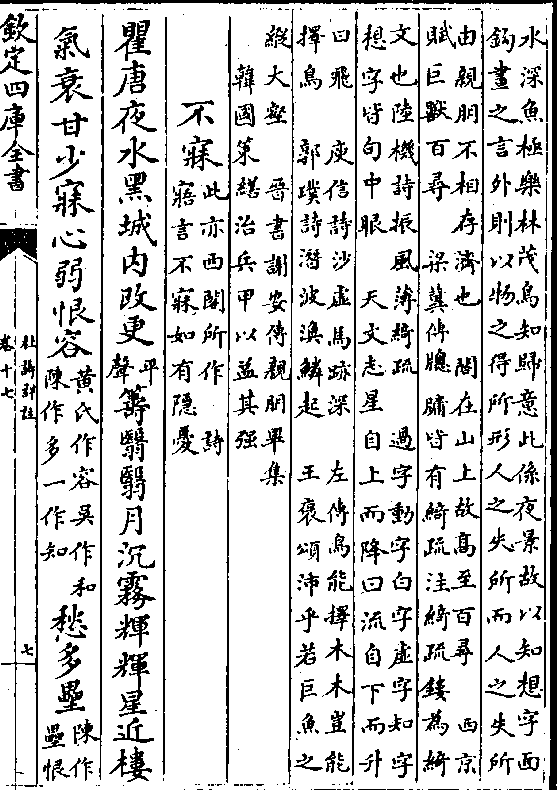 水深魚極樂林茂鳥知歸意此係夜景故以知想字面
鈎畫之言外則以物之得所形人之失所而人之失所
由親朋不相存濟也　閣在山上故髙至百尋　西京
賦巨獸百尋　梁冀傳牕牖皆有綺疏注綺疏鏤為綺
文也陸機詩振風薄綺疏　過字動字白字虛字知字
想字皆句中眼　天文志星自上而降曰流自下而升
曰飛　庾信詩沙虛馬跡深　左傳鳥能擇木木豈能
擇鳥　郭璞詩潛波渙鱗起　王褒頌沛乎若巨魚之
縱大壑　晉書謝安傳親朋畢集
韓國策繕治兵甲以益其强
不寐此亦西閣所作　詩寤言不寐如有隱憂
瞿唐夜水黑城内改更平聲籌翳翳月沉霧輝輝星近樓
氣衰甘少寐心弱恨容黃氏作容吳作和陳作多一作知愁多壘陳作壘恨
欽定四庫全書
杜詩詳註
卷十七
七